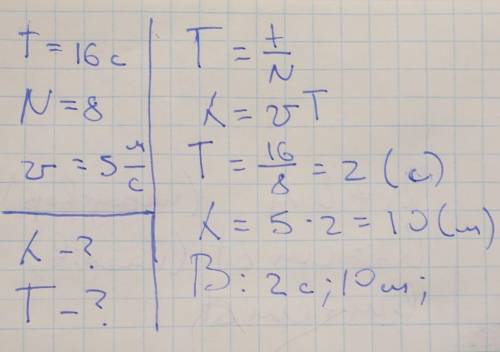 t = 16 с
N = 8
v = 5 м/с
λ - ?
T - ?
T = t/N
λ = vT
T = 16/8 = 2 (с)
λ = 5 · 2 = 10 (м)
В: 2с; 10м;